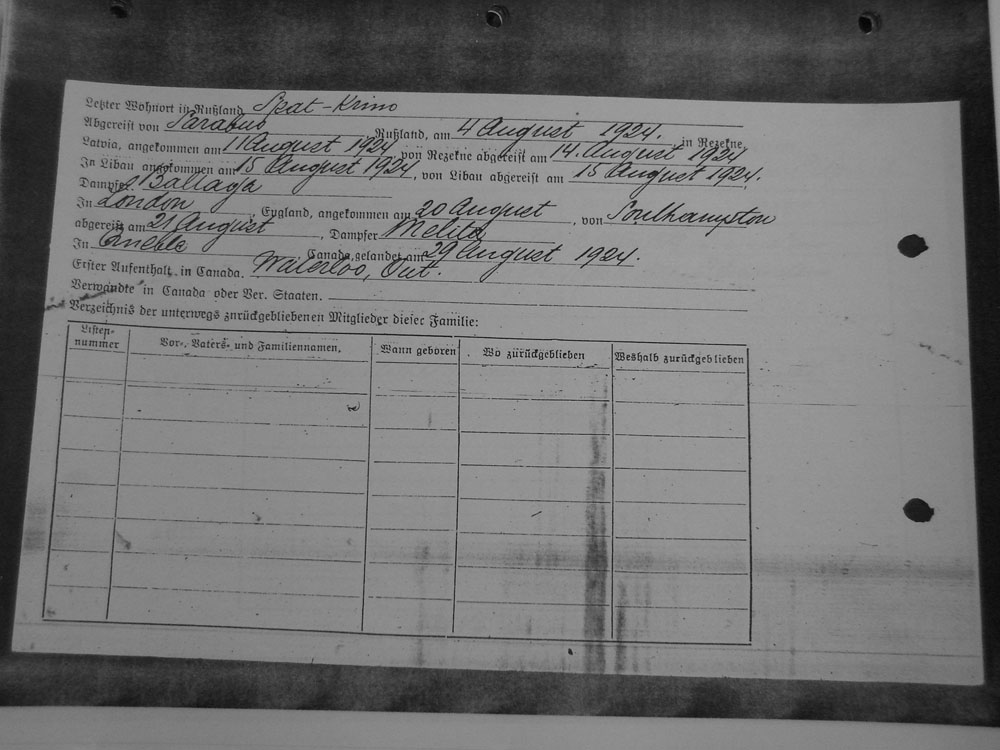 Letzter Wohnort in Rußland Spat-Krim
Abgereist von Parabus Rußland, am 4 August 1924. in Rezekne,
Latvia, angekommen am 11 August 1924 von Rezekne abgereist am 14. August 1924
In Libau angekommen am 15 August 1924, von Libau abgereist am 15 August 1924.
Dampfer Ballaga
In London, England, angekommen am 20 August, von Southampton
abgereist am 21 August, Dampfer Melita
In Quebec Canada, gelandet am 29 August 1924.
Erster Aufenthalt in Canada. Waterloo, Ont.
Verwandte in Canada oder Ver. Staaten.
Verzeichnis der unterwegs zurückgebliebenen Mitglieder dieser Familie:
Listen-
nummer Vor-, Vaters- und Familiennamen, Wann geboren Wo zurückgeblieben Weshalb zurückgeblieben